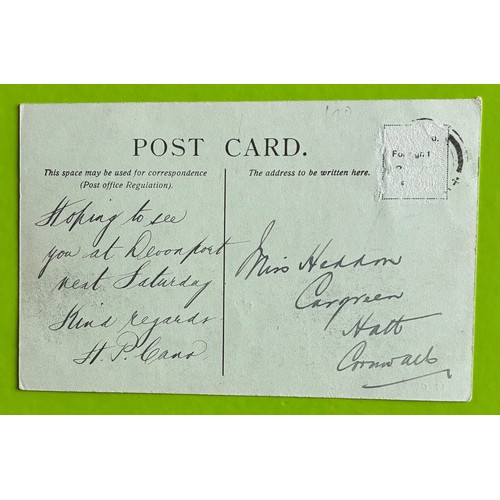 POST CARD.
This space may be used for correspondence
(Post office Regulation).
The address to be written here.
Hoping to see
you at Devonport
next Saturday
Kind regards
H. P.
Miss Heddon
Cargreen
Hatt
Cornwall